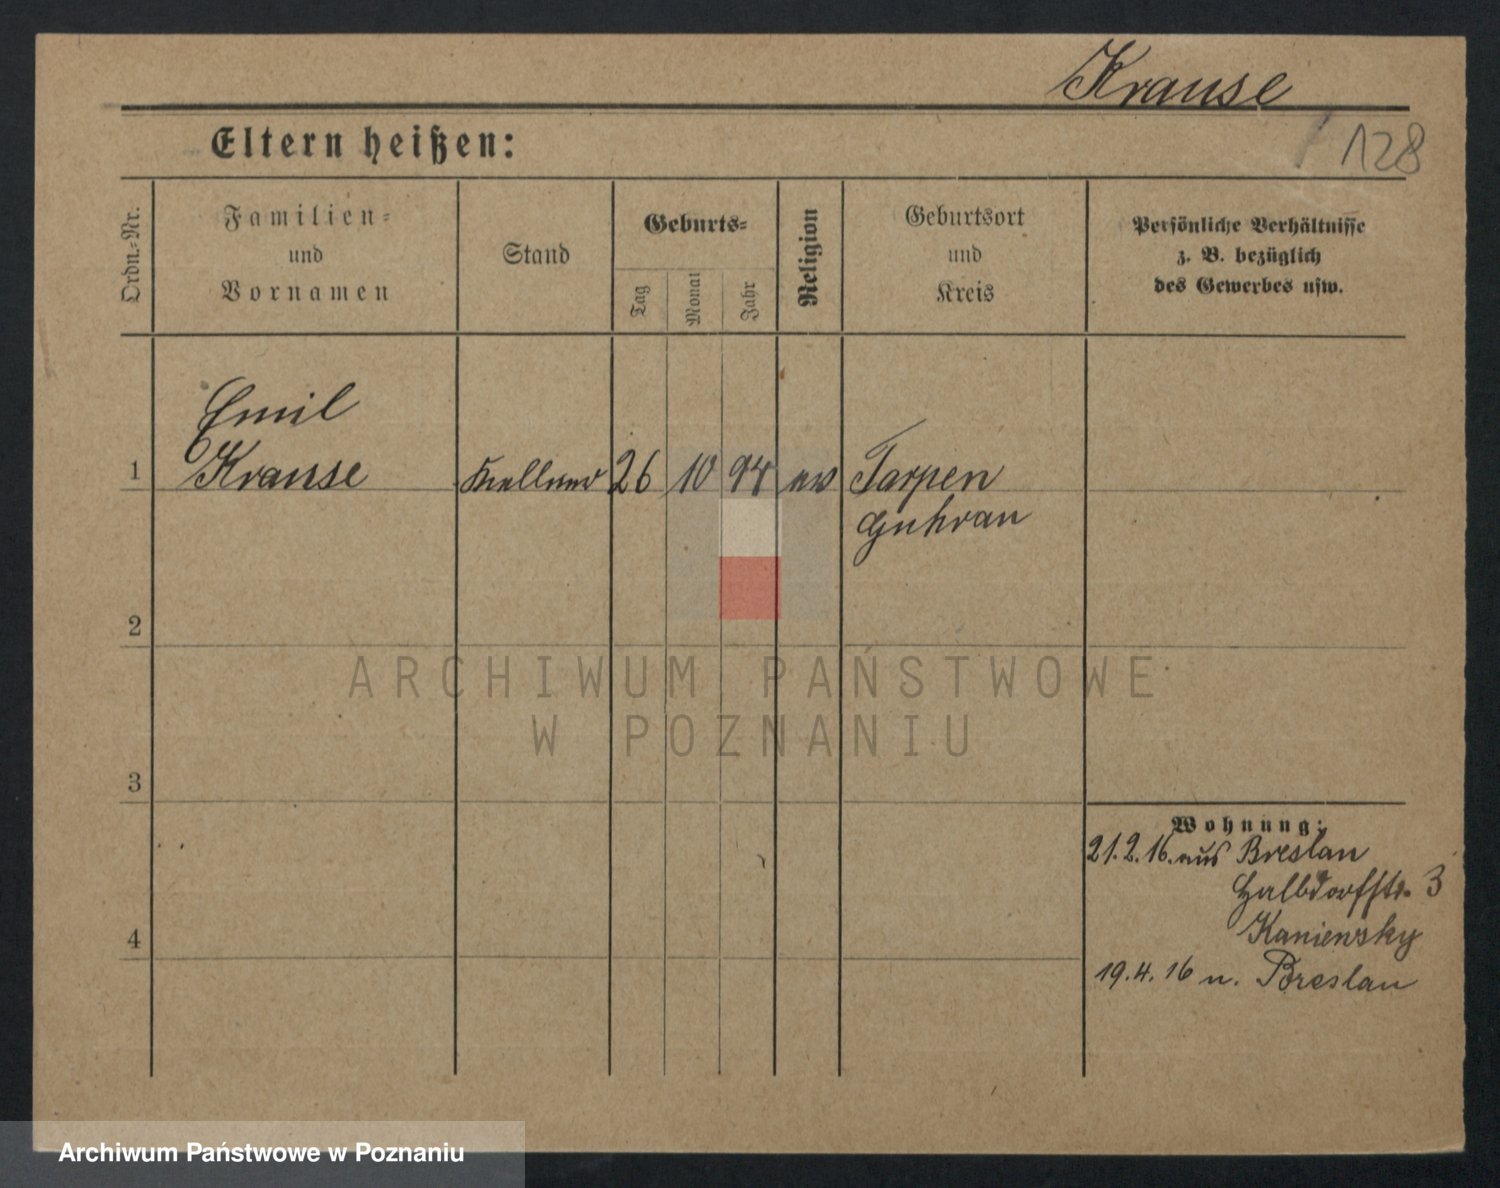 Krause
128
Eltern heißen:
Ordn.-Nr.
Familien-
und
Vornamen
Stand
Geburts-
Tag
Monat
Jahr
Religion
Geburtsort
und
Kreis
Persönliche Verhältnisse
z. B. bezüglich
des Gewerbes usw.
Emil
1 Krause Kellner 26 10 94 ev Tarpen
Guhrau
2
ARCHIWUM PAŃSTWOWE
W POZNANIU
3
Wohnung:
21.2.16. aus Breslau
Halbdorfstr. 3
Kaniensky
4
19.4.16 n. Breslau
Archiwum Państwowe w Poznaniu